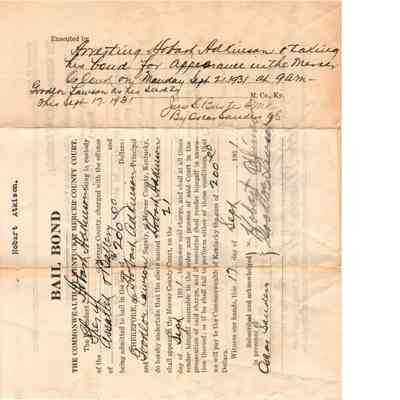 Executed by Arresting Hobart Adkinson & taking
his bond for Appearance in the Mercer
Co. Court on Monday Sept 21. 1931 at 9 am-
Goodlor Lawson as his surety
This Sept 17. 1931
M. Co., Ky.
By Oscar Sanders
Hobart Atkison.
BAIL BOND
THE COMMONWEALTH OF KENTUCKY OF MERCER COUNTY COURT.
The Defendant Hobart Adkinson being in custody
of Mercer County, charged with the offense
of Assault & Battery
being admitted to bail in the sum of $200.00 Dollars:
THEREFORE, we Hobart Adkinson Principal
and Goodlor Lawson Surety, of Mercer County, Kentucky,
do hereby undertake that the above named Hobart Adkinson
shall appear in the Mercer County Court, on the 21
day of Sept 1931 to answer said charge, and shall at all times
render himself amenable to the order and process of said Court in the
prosecution of said charge, and if convicted shall render himself in execu-
tion thereof; or if he shall fail to perform either of these conditions, that
we will pay to the Commonwealth of Kentucky the sum of 200.00
Dollars.
Witness our hands, this 17 day of Sept 1931
Subscribed and acknowledged
in presence of
Oscar Sanders
Hobart